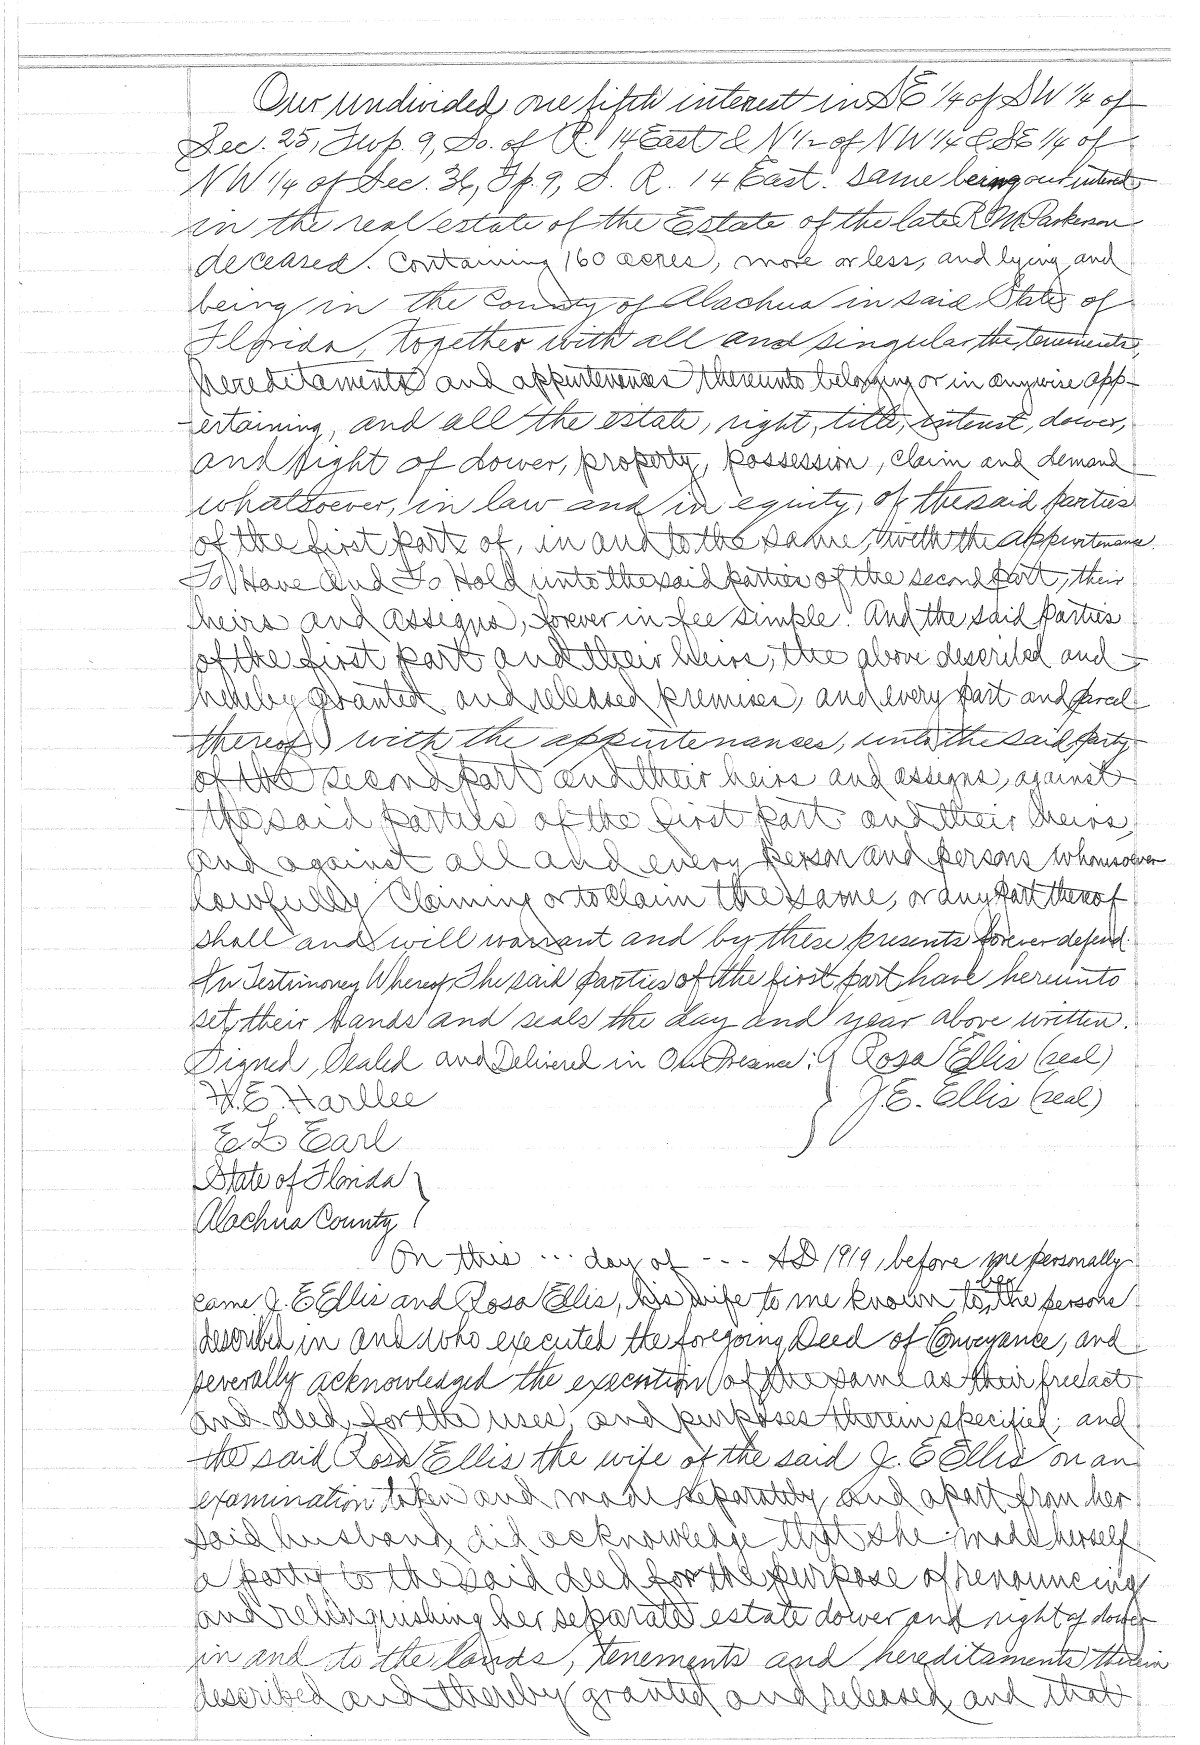 Our undivided one fifth interest in SE 1/4 of SW 1/4 of
Sec. 25, Twp. 9, So. of R. 14 East & N 1/2 of NW 1/4 & SE 1/4 of
NW 1/4 of Sec. 36, Tp. 9, S. R. 14 East. same being our interest
in the real estate of the Estate of the late R M Parkerson
deceased. Containing 160 acres, more or less, and lying and
being in the County of Alachua in said State of
Florida, together with all and singular the tenements,
hereditaments and appurtenances thereunto belonging or in anywise app-
ertaining, and all the estate, right, title, interest, dower,
and right of dower, property, possession, claim and demand
whatsoever, in law and in equity, of the said parties
of the first part of, in and to the same, with the appurtenance.
To Have And To Hold unto the said parties of the second part, their
heirs and assigns, forever in fee simple. And the said parties
of the first part and their heirs, the above described and
hereby granted and released premises, and every part and parcel
thereof, with the appurtenances, unto the said party
of the second part and their heirs and assigns, against
the said parties of the first part and their heirs,
and against all and every person and persons whomsoever
lawfully Claiming or to claim the same, or any part thereof
shall and will warrant and by these presents forever defend.
In Testimoney Whereof, The said parties of the first part have hereunto
set their hands and seals the day and year above written.
Signed, Sealed and Delivered in Our Presence: } Rosa Ellis (seal)
H.E. Harllee } J.E. Ellis (seal)
E L Earl
State of Florida }
Alachua County }
On this ... day of - - - AD 1919, before me personally
came J. E Ellis and Rosa Ellis, his wife to me known to be the persons
described in and who executed the foregoing Deed of Conveyance, and
severally acknowledged the execution of the same as their free act
and deed, for the uses, and purposes therein specified; and
the said Rosa Ellis the wife of the said J. E Ellis on an
examination taken and made separately and apart from her
said husband, did acknowledge that she made herself
a party to the said deed for the purpose of renouncing
and relinquishing her separate estate dower and right of dower
in and to the lands, tenements and hereditaments therein
described and thereby granted and released, and that